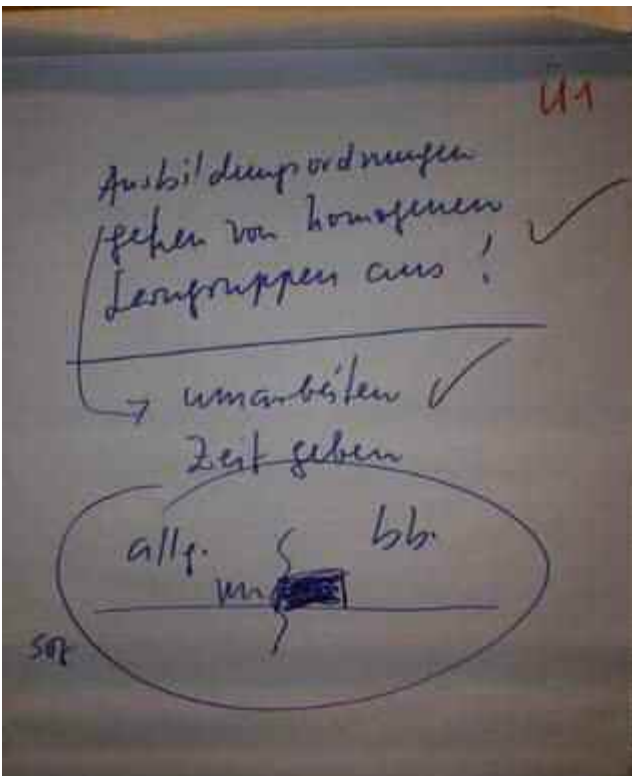 Ü1
Ausbildungsordnungen
gehen von homogenen
Lerngruppen aus!
umarbeiten
Zeit geben
allg. bb.